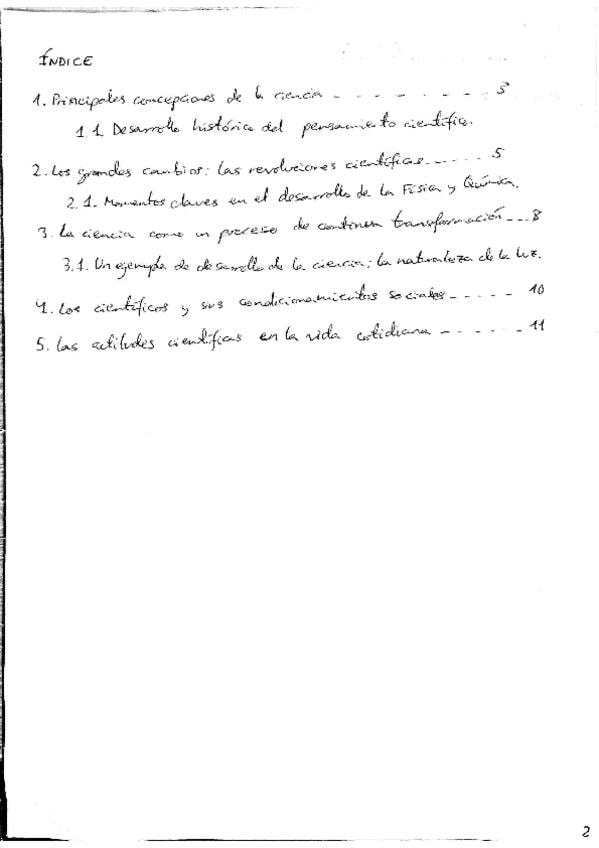 ÍNDICE
1. Principales concepciones de la ciencia - - - - - - - - - 3
1.1. Desarrollo histórico del pensamiento científico.
2. Los grandes cambios: las revoluciones científicas - - - - - 5
2.1. Momentos claves en el desarrollo de la Física y Química.
3. La ciencia como un proceso de continua transformación - - - 8
3.1. Un ejemplo de desarrollo de la ciencia: la naturaleza de la luz.
4. Los científicos y sus condicionamientos sociales - - - - - 10
5. Las actitudes científicas en la vida cotidiana - - - - - - 11
2